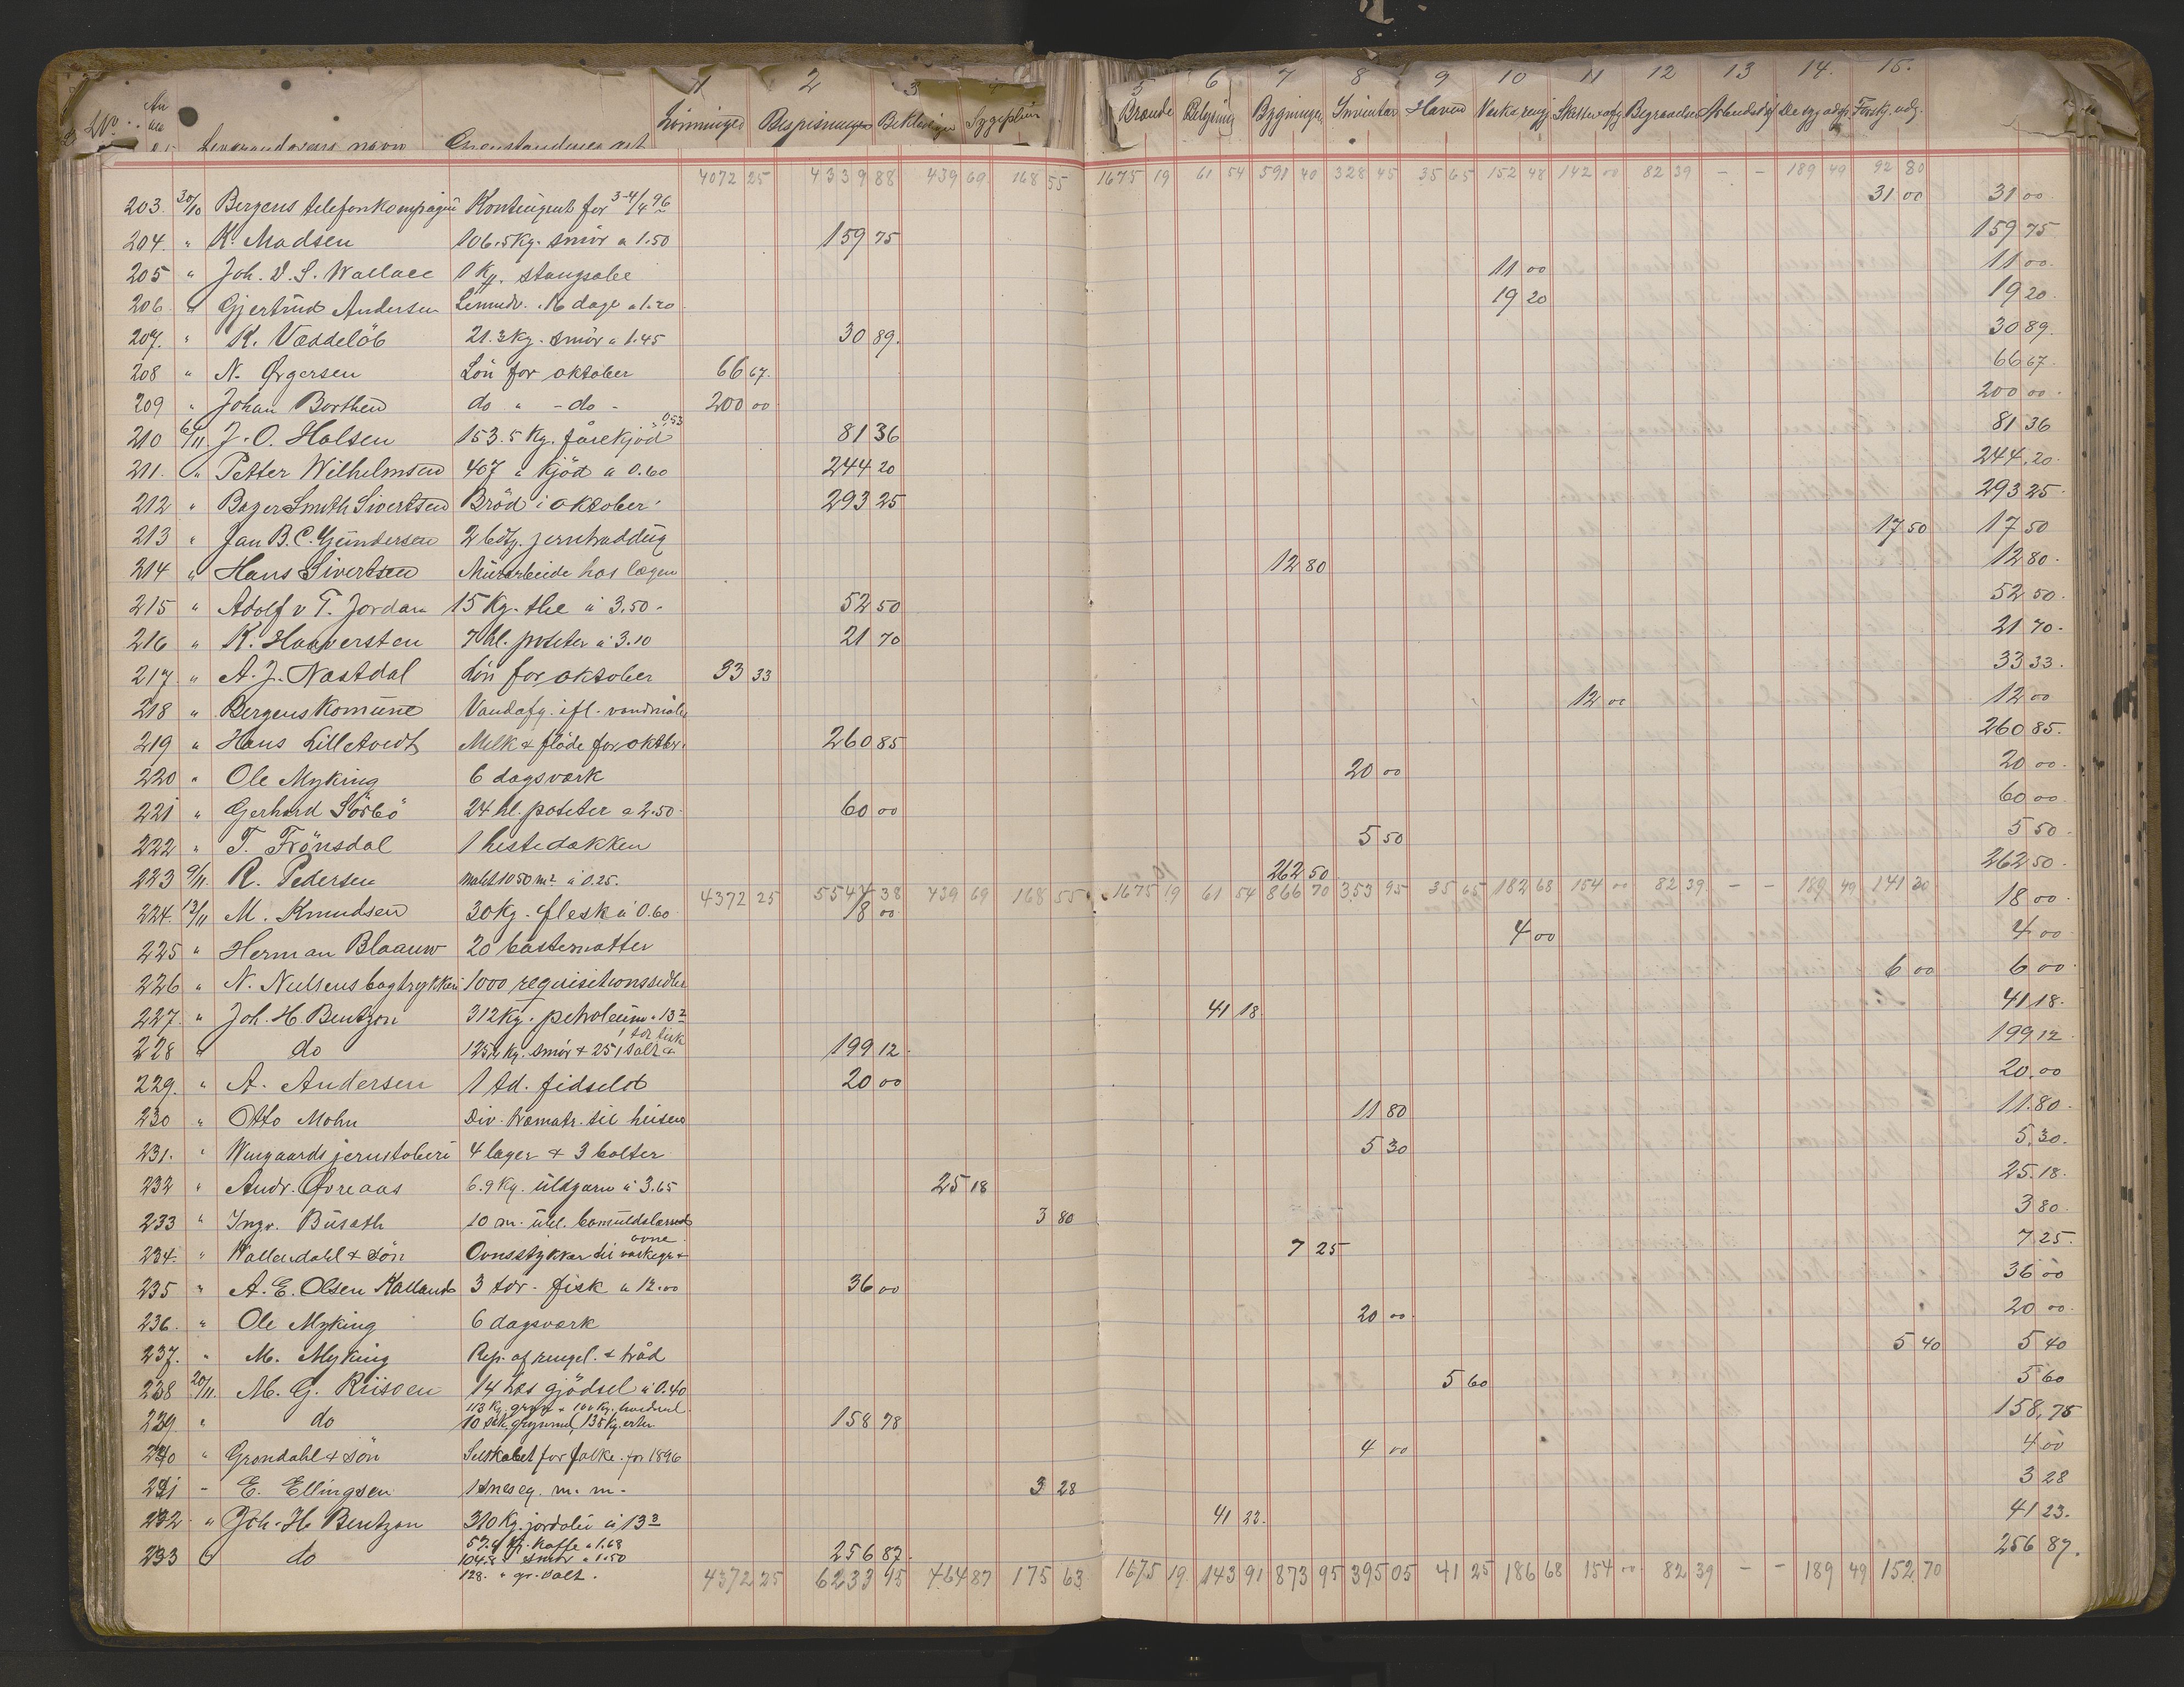 1 2 3 4 5 6 7 8 9 10 11 12 13 14. 15.
No. Leverandørens navn Lønninger Bespisning Beklædning Sygepleien Brænde Belysning Bygninger Inventar Haven
4072 25 4339 88 439 69 168 55 1675 19 61 54 591 40 328 45 35 65 152 48 142 00 82 39 - - 189 49 92 80
203. 30/10 Bergens telefonkompagni Kontingent for 31 00 31 00
204. " K. Madsen 106.5 Kg. smör a 1.50 159 75 159 75
205 " Joh. D. S. Wallace 1 Kg. stangsabe 11 00 11 00.
206. " Gjertrud Andersen 16 dage a 1.20 19 20 19 20.
207. " K. Væddelöb 21.3 Kg. smör a 1.45 30 89. 30 89.
208 " N. Ørgersen Lön for oktober 66 67. 66 67.
209 " Johan Borthen do " - do - 200 00 200 00.
210 6/11 J. O. Halsen 153.5 Kg. fårekjöd a 0.53 81 36 81 36
211. " Petter Wilhelmsen 407 " Kjöd a 0.60 244 20 244.20.
212 " Bager Smith Sivertsen Bröd i oktober. 293 25 293 25.
213 " Jan B. C. Gündersen 17 50 17 50
214 " Hans Sivertsen Mürarbeide hos lægen 12 80 12 80.
215 " Adolf v T. Jordan 15 Kg. the a 3.50. 52 50 52 50.
216 " K. Haaversten 7 hl. poteter a 3.10 21 70 21 70.
217 " A. J. Nastdal Lön for oktober 33 33 33 33.
218 " Bergens Komüne Vandafg. ifl. vandmåler 12 00 12 00
219 " Hans Lilletvedt Melk & flöde for oktbr. 260 85 260 85.
220 " Ole Myking 6 dagsværk 20 00 20 00.
221 " Gerhard Sörbö 24 hl. poteter a 2.50. 60 00 60 00.
222 " T. Frönsdal 1 hestedækken 5 50 5 50.
223 9/11. R. Pedersen Malet 1050 m² a 0.25. 262 50 262 50.
4372 25 5544 38 439 69 168 55 1675 19 61 54 866 70 353 95 35 65 182 68 154 00 82 39 - - 189 49 141 30
224. 13/11 M. Knudsen 30 Kg. flesk a 0.60 18 00 18 00.
225 " Herman Blaauw 20 bastematter 4 00 4 00
226 " N. Nilsens bogtrykkeri 1000 requisitionssedler 6 00 6 00.
227. " Joh. H. Bentzon 312 Kg. petroleum a 13² 41 18. 41 18.
228 " do 199 12. 199 12.
229. " A. Andersen 1 td. fidselot 20 00 20.00
230 " Otto Mohn til heisen 11 80 11.80.
231. " Wingaards jernstøberi 4 lager & 3 bolter 5 30 5.30.
232 " Andr. Øvreaas 6.9 Kg. üldgarn a 3.65 25 18 25.18.
233 " Ingv. Büsath 10 m. übl. bomüldslærred 3 80 3 80.
234. " Wallendahl & Sön Ovnsstykker til 7 25 7.25.
235 " A. E. Olsen Kalland 3 tdr. fisk a 12.00 36 00 36 00
236. " Ole Myking 6 dagsværk 20 00. 20 00.
237. " M. Myking Rep. af rengel. & tråd 5 40 5 40
238 20/11. M. G. Riisoen 14 læs gjödsel a 0.40 5 60 5 60
239 " do 158 78 158.78
240 " Grøndahl & Sön Selskabet for folke. for 1896 4 00 4 00
241 - E. Ellingsen m. m. 3 28 3 28
242 " Joh. H. Bentzon 310 Kg. jordolie a 13³ 41 23. 41 23.
243 " do 57.4 Kg. Kaffe a 1.68 256 87. 256 87.
104.8 " smör a 1.50
128. " gr. salt.
4372 25 6233 95 464 87 175 63 1675 19 143 91 873 95 395 05 41 25 186 68 154 00 82 39 - - 189 49 152 70